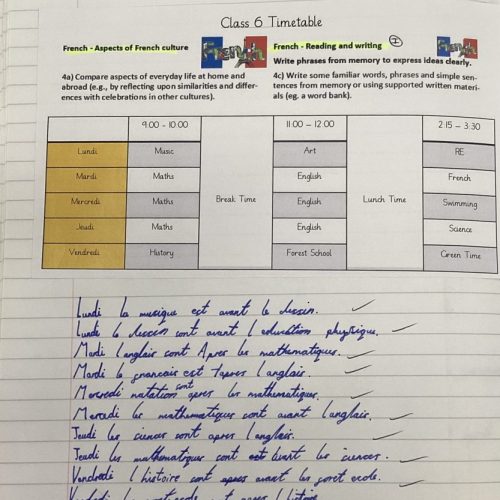 Class 6 Timetable
French - Aspects of French culture
French
French - Reading and writing
I
French
Write phrases from memory to express ideas clearly.
4a) Compare aspects of everyday life at home and
abroad (e.g., by reflecting upon similarities and differ-
ences with celebrations in other cultures).
4c) Write some familiar words, phrases and simple sen-
tences from memory or using supported written materi-
als (eg. a word bank).
9:00 - 10:00 11:00 - 12:00 2:15 - 3:30
Lundi Music Art RE
Mardi Maths English French
Mercredi Maths Break Time English Lunch Time Swimming
Jeudi Maths English Science
Vendredi History Forest School Green Time
Lundi la musique est avant le dessin.
Lundi le dessin sont avant l'education physique.
Mardi l'anglais sont Apres les mathematiques.
Mardi le francais est apres l'anglais.
Mercredi natation sont apres les mathematiques.
Mercredi les mathematiques sont avant l'anglais.
Jeudi les siences sont apres l'anglais.
Jeudi les mathematiques sont avant les siences.
Vendredi l'histoire sont avant les foret ecole.